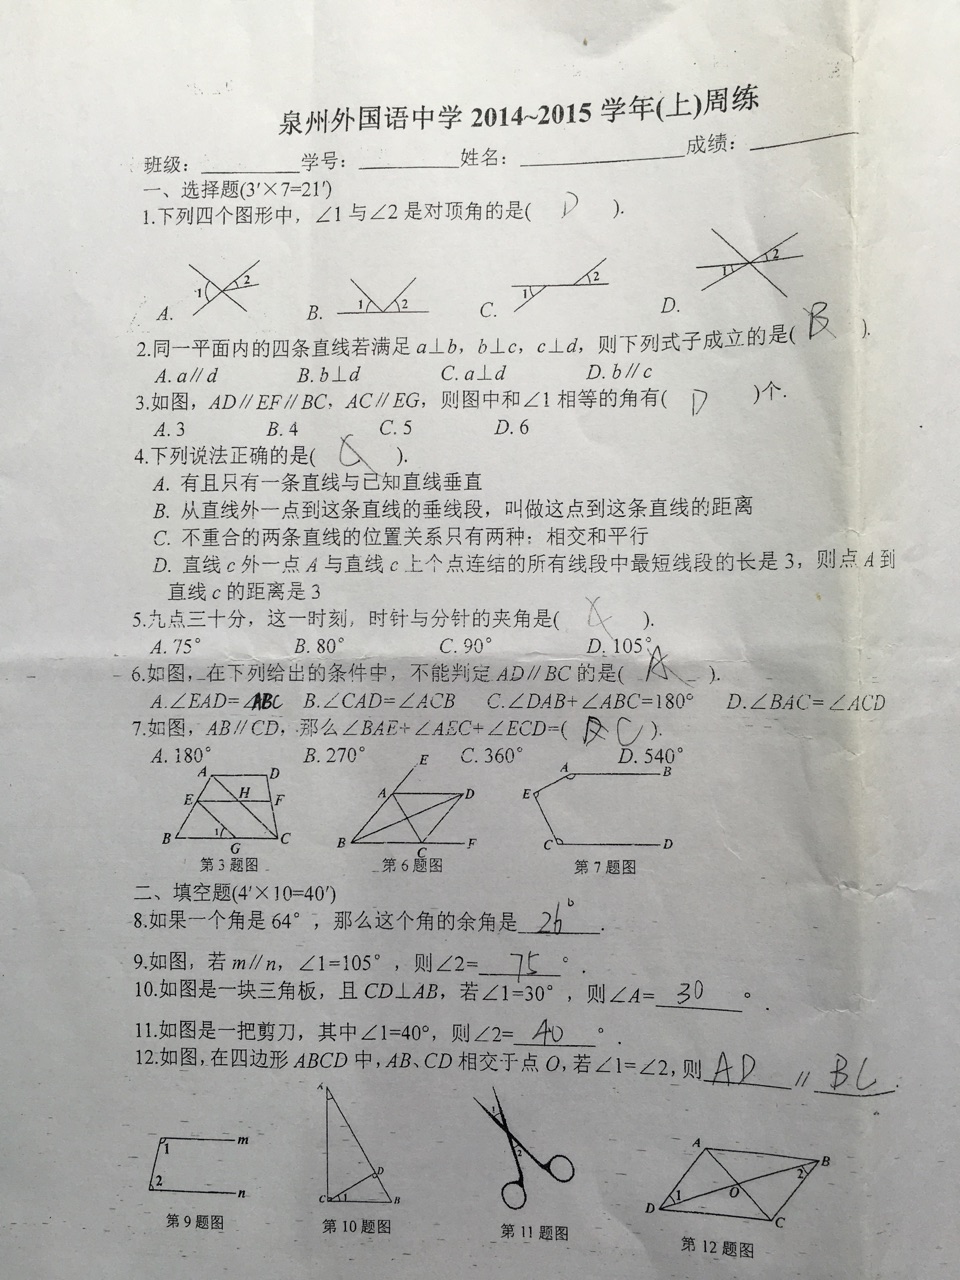 泉州外国语中学 2014~2015 学年(上)周练
班级：________学号：________姓名：____________成绩：________
一、选择题(3′×7=21′)
1.下列四个图形中，∠1与∠2是对顶角的是( D ).
1 2 1 2 1 2 1 2
A. B. C. D.
2.同一平面内的四条直线若满足a⊥b，b⊥c，c⊥d，则下列式子成立的是( B ).
A. a∥d B. b⊥d C. a⊥d D. b∥c
3.如图，AD∥EF∥BC，AC∥EG，则图中和∠1相等的角有( D )个.
A. 3 B. 4 C. 5 D. 6
4.下列说法正确的是( C ).
A. 有且只有一条直线与已知直线垂直
B. 从直线外一点到这条直线的垂线段，叫做这点到这条直线的距离
C. 不重合的两条直线的位置关系只有两种：相交和平行
D. 直线c外一点A与直线c上个点连结的所有线段中最短线段的长是3，则点A到
直线c的距离是3
5.九点三十分，这一时刻，时针与分针的夹角是( ).
A. 75° B. 80° C. 90° D. 105°
6.如图，在下列给出的条件中，不能判定AD∥BC的是( A ).
A.∠EAD=∠ABC B.∠CAD=∠ACB C.∠DAB+∠ABC=180° D.∠BAC=∠ACD
7.如图，AB∥CD，那么∠BAE+∠AEC+∠ECD=( C ).
A. 180° B. 270° C. 360° D. 540°
A D E H F B 1 G C
E A D B C F
A B E C D
第3题图 第6题图 第7题图
二、填空题(4′×10=40′)
8.如果一个角是64°，那么这个角的余角是 26° .
9.如图，若m∥n，∠1=105°，则∠2= 75 °.
10.如图是一块三角板，且CD⊥AB，若∠1=30°，则∠A= 30 °.
11.如图是一把剪刀，其中∠1=40°，则∠2= 40 °.
12.如图,在四边形ABCD中,AB、CD相交于点O,若∠1=∠2,则 AD ∥ BC .
1 m 2 n
A D C 1 B
1 2
A B 2 D 1 O C
第9题图 第10题图 第11题图 第12题图